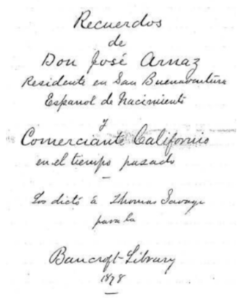 Recuerdos
de
Don José Arnaz
Residente en San Buenaventura
Español de Nacimiento
y
Comerciante Californio
en el tiempo pasado
Los dictó á Thomas Savage
para la
Bancroft-Library
1878